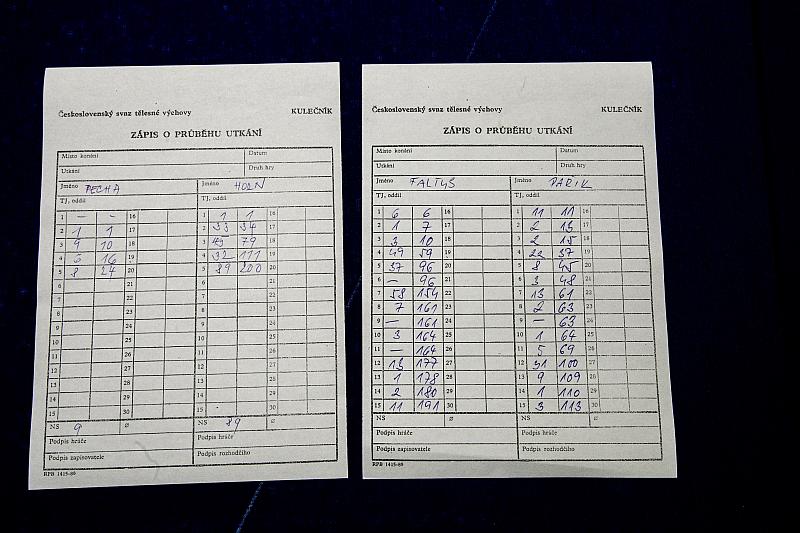 Československý svaz tělesné výchovy KULEČNÍK
ZÁPIS O PRŮBĚHU UTKÁNÍ
Místo konání Datum
Utkání Druh hry
Jméno PECHA Jméno HORN
TJ, oddíl
1 – – 16 1 1 1 16
2 1 1 17 2 33 34 17
3 9 10 18 3 45 79 18
4 6 16 19 4 32 111 19
5 8 24 20 5 89 200 20
6 21 6 21
7 22 7 22
8 23 8 23
9 24 9 24
10 25 10 25
11 26 11 26
12 27 12 27
13 28 13 28
14 29 14 29
15 30 15 30
NS 9 ø NS 89 ø
Podpis hráče Podpis hráče
Podpis zapisovatele Podpis rozhodčího
RPB 1415-89
Československý svaz tělesné výchovy KULEČNÍK
ZÁPIS O PRŮBĚHU UTKÁNÍ
Místo konání Datum
Utkání Druh hry
Jméno FALTUS Jméno PAŘIK
TJ, oddíl TJ, oddíl
1 6 6 16 1 11 11 16
2 1 7 17 2 2 13 17
3 3 10 18 3 2 15 18
4 49 59 19 4 22 37 19
5 37 96 20 5 8 45 20
6 – 96 21 6 3 48 21
7 58 154 22 7 13 61 22
8 7 161 23 8 2 63 23
9 – 161 24 9 – 63 24
10 3 164 25 10 1 64 25
11 – 164 26 11 5 69 26
12 13 177 27 12 31 100 27
13 1 178 28 13 9 109 28
14 2 180 29 14 1 110 29
15 11 191 30 15 3 113 30
NS ø NS ø
Podpis hráče Podpis hráče
Podpis zapisovatele Podpis rozhodčího
RPB 1415-89